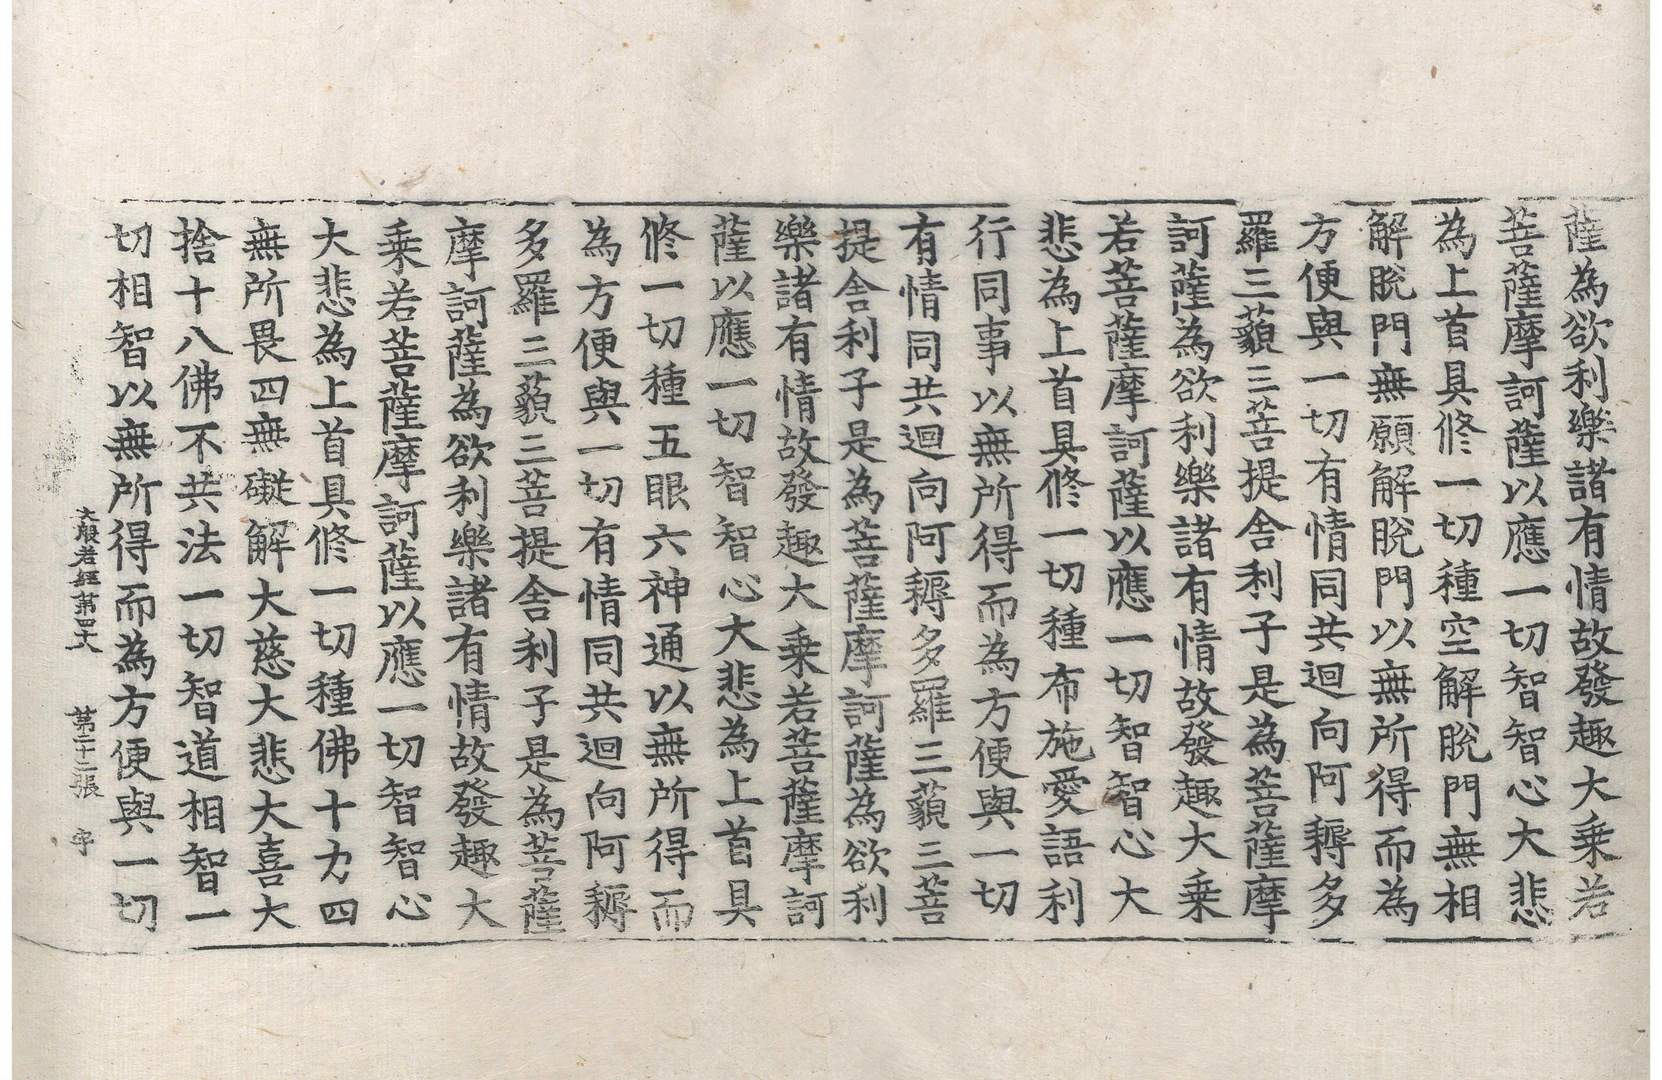 薩為欲利樂諸有情故發趣大乗若
菩薩摩訶薩以應一切智智心大悲
為上首具修一切種空解脫門無相
解脫門無願解脫門以無所得而為
方便與一切有情同共迴向阿耨多
羅三藐三菩提舍利子是為菩薩摩
訶薩為欲利樂諸有情故發趣大乗
若菩薩摩訶薩以應一切智智心大
悲為上首具修一切種布施愛語利
行同事以無所得而為方便與一切
有情同共迴向阿耨多羅三藐三菩
提舍利子是為菩薩摩訶薩為欲利
樂諸有情故發趣大乗若菩薩摩訶
薩以應一切智智心大悲為上首具
修一切種五眼六神通以無所得而
為方便與一切有情同共迴向阿耨
多羅三藐三菩提舍利子是為菩薩
摩訶薩為欲利樂諸有情故發趣大
乗若菩薩摩訶薩以應一切智智心
大悲為上首具修一切種佛十力四
無所畏四無礙解大慈大悲大喜大
捨十八佛不共法一切智道相智一
切相智以無所得而為方便與一切
大般若經第四十六 第二十二張 宇